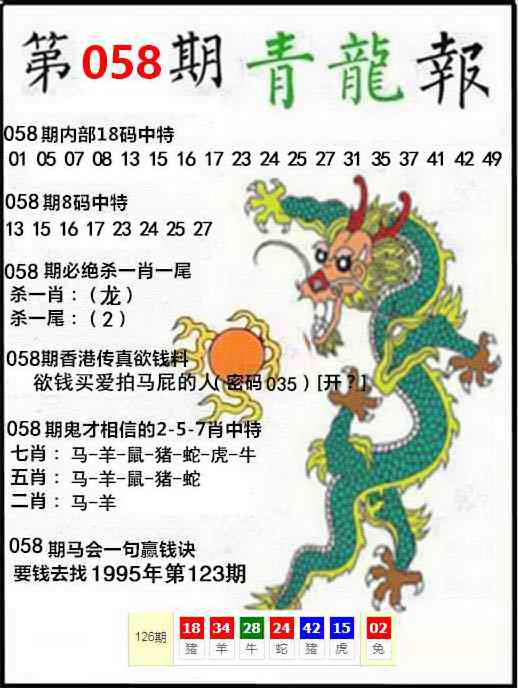 第058期青龍報
058期内部18码中特
01 05 07 08 13 15 16 17 23 24 25 27 31 35 37 41 42 49
058期8码中特
13 15 16 17 23 24 25 27
058 期必绝杀一肖一尾
杀一肖：（龙）
杀一尾：（2）
058期香港传真欲钱料
欲钱买爱拍马屁的人(密码035）[开？]
058期鬼才相信的2-5-7肖中特
七肖：马-羊-鼠-猪-蛇-虎-牛
五肖：马-羊-鼠-猪-蛇
二肖：马-羊
058期马会一句赢钱诀
要钱去找1995年第123期
126期 18 34 28 24 42 15 02
猪 羊 牛 蛇 猪 虎 兔